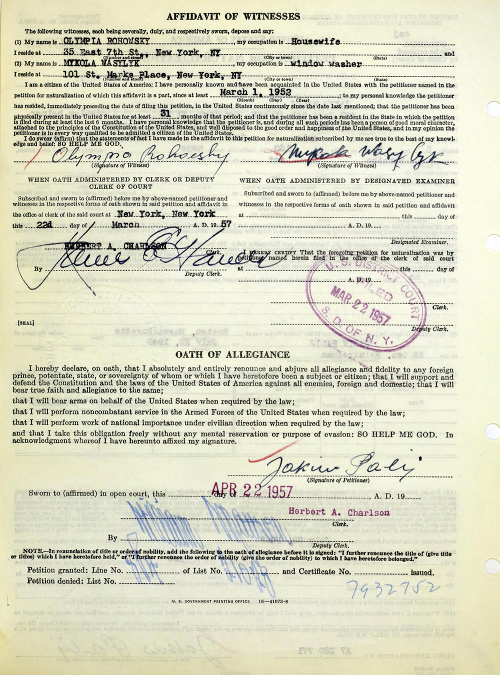 AFFIDAVIT OF WITNESSES
The following witnesses, each being severally, duly, and respectively sworn, depose and say:
(1) My name is OLYMPIA ROHOWSKY, my occupation is Housewife
I reside at 35 East 7th St., New York, NY and
(Number and street) (City or town) (State)
(2) My name is MYKOLA WASYLYK, my occupation is window washer
I reside at 101 St. Marks Place, New York, NY
(Number and street) (City or town) (State)
I am a citizen of the United States of America; I have personally known and have been acquainted in the United States with the petitioner named in the
petition for naturalization of which this affidavit is a part, since at least March 1, 1952; to my personal knowledge the petitioner
has resided, immediately preceding the date of filing this petition, in the United States continuously since the date last mentioned; that the petitioner has been
physically present in the United States for at least 31 months of that period; and that the petitioner has been a resident in the State in which the petition
is filed during at least the last 6 months. I have personal knowledge that the petitioner is, and during all such periods has been a person of good moral character,
attached to the principles of the Constitution of the United States, and well disposed to the good order and happiness of the United States, and in my opinion
the petitioner is in every way qualified to be admitted a citizen of the United States.
I do swear (affirm) that the statements of fact I have made in this affidavit to this petition for naturalization subscribed by me are true to the best of my knowledge
and belief: SO HELP ME GOD.
Olympia Rohowsky
(Signature of Witness) (Signature of Witness)
WHEN OATH ADMINISTERED BY CLERK OR DEPUTY
CLERK OF COURT
Subscribed and sworn to (affirmed) before me by above-named petitioner and
witnesses in the respective forms of oath shown in said petition and affidavit in
the office of clerk of the said court at New York, New York
this 22d day of March A. D. 1957
HERBERT A. CHARLSON
Clerk.
By
Deputy Clerk.
[SEAL]
WHEN OATH ADMINISTERED BY DESIGNATED EXAMINER
Subscribed and sworn to (affirmed) before me by above-named petitioner and
witnesses in the respective forms of oath shown in said petition and affidavit
at this day of
A. D. 19
Designated Examiner.
I HEREBY CERTIFY That the foregoing petition for naturalization was by
petitioner named herein filed in the office of the clerk of said court
this day of
A. D. 19
Clerk.
Deputy Clerk.
U. S. DISTRICT COURT
FILED
MAR 22 1957
S. D. OF N. Y.
OATH OF ALLEGIANCE
I hereby declare, on oath, that I absolutely and entirely renounce and abjure all allegiance and fidelity to any foreign
prince, potentate, state, or sovereignty of whom or which I have heretofore been a subject or citizen; that I will support and
defend the Constitution and the laws of the United States of America against all enemies, foreign and domestic; that I will
bear true faith and allegiance to the same;
that I will bear arms on behalf of the United States when required by the law;
that I will perform noncombatant service in the Armed Forces of the United States when required by the law;
that I will perform work of national importance under civilian direction when required by the law;
and that I take this obligation freely without any mental reservation or purpose of evasion: SO HELP ME GOD. In
acknowledgment whereof I have hereunto affixed my signature.
Jakiw Palij
(Signature of Petitioner)
Sworn to (affirmed) in open court, this day of APR 22 1957 A. D. 19
Herbert A. Charlson
Clerk.
By
Deputy Clerk.
NOTE.—In renunciation of title or order of nobility, add the following to the oath of allegiance before it is signed: "I further renounce the title of (give title
or titles) which I have heretofore held," or "I further renounce the order of nobility (give the order of nobility) to which I have heretofore belonged."
Petition granted: Line No. of List No. and Certificate No. issued.
Petition denied: List No. 7932752
U. S. GOVERNMENT PRINTING OFFICE 16—41073-8